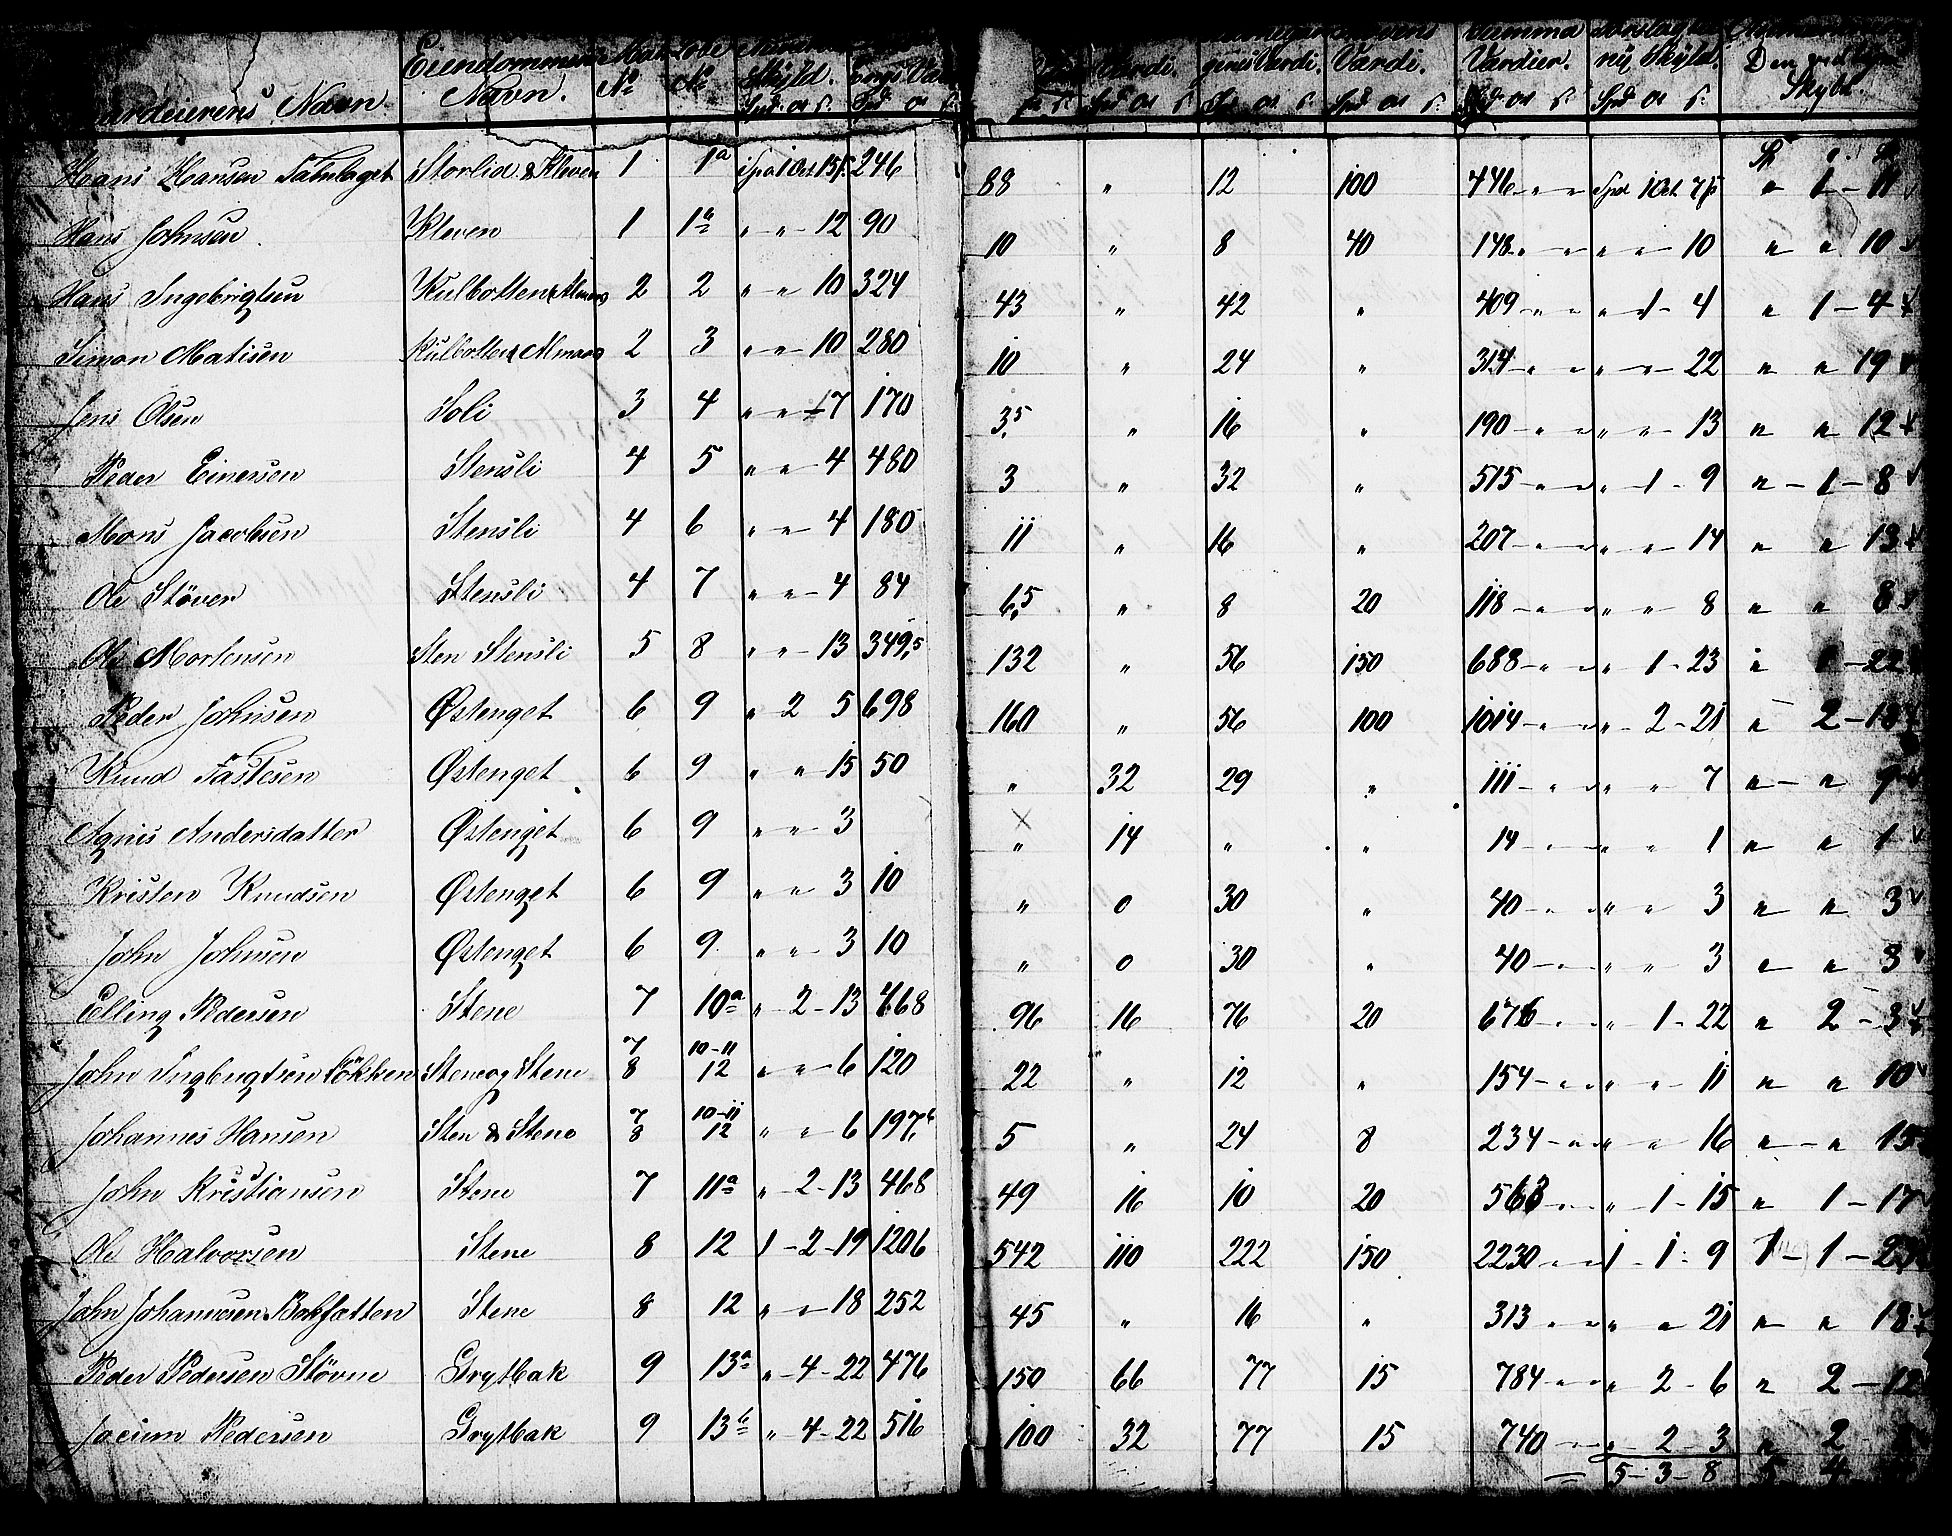 Eiendommens Navn. No No Skyld. Værdi. Værdi. Værdi. Summa Værdier. ny Skyld. Skyld.
Hans Hansen Storlid & Kleven 1 1a 1 Ort 15 s. 246 88 " 12 100 446 " " 1 Ort " 1 - 11
Hans Johnsen Kleven 1 1b " " 12 90 10 " 8 40 148 " " " " 10 " " 10
Hans Ingebrigtsen Kulbotten & Almaas 2 2 " " 10 324 43 " 42 " 409 " " " 1 - 4 " 1 - 4
Simon Matisen Kulbotten & Almaas 2 3 " " 10 280 10 " 24 " 314 " " " " 22 " " 19
Jens Olsen Soli 3 4 " " 17 170 3.5 " 16 " 190 " " " " 13 " " 12
Peder Einersen Stensli 4 5 " " 4 480 3 " 32 " 515 " " " 1 - 9 " 1 - 8
Mons Jacobsen Stensli 4 6 " " 4 180 11 " 16 " 207 " " " " 14 " " 13
Ole Støver Stensli 4 7 " " 4 84 6.5 " 8 20 118 " " " " 8 " " 8
Ole Mortensen Sten Stensli 5 8 " " 13 349.5 132 " 56 150 688 " " " 1 - 23 " 1 - 22
Peder Johnsen Østenget 6 9 " 2 5 698 160 " 56 100 1014 " " " 2 - 21 " 2 - 18
Knud Fastesen Østenget 6 9 " " 15 50 " 32 29 " 111 " " " " 7 " "
Agnis Andersdatter Østenget 6 9 " " 3 " 14 " " 14 " " " " 1 " " 1
Kristen Knudsen Østenget 6 9 " " 3 10 " 0 30 " 40 " " " " 3 " " 3
John Johnsen Østenget 6 9 " " 3 10 " 0 30 " 40 " " " " 3 " " 3
Elling Pedersen Stene 7 10a " 2 - 13 468 96 16 76 20 676 " " " 1 - 22 " 2 - 3
John Ingbrigtsen Løkken Sten og Stene 7 8 10-11 12 " " 6 120 22 " 12 " 154 " " " " 11 " " 10
Johannes Hansen Sten & Stene 7 8 10-11 12 " " 6 197. 5 " 24 8 234 " " " " 16 " " 15
John Kristiansen Stene 7 11a " 2 - 13 468 49 16 10 20 563 " " " 1 - 15 " 1 - 17
Ole Halvorsen Stene 8 12 1 - 2 - 19 1206 542 110 222 150 2230 " " 1 1 - 9 1 - 1 -
John Johannesen Bakfætten Stene 8 12 " " 18 252 45 " 16 " 313 " " " " 21 " " 18
Peder Pedersen Støvne Grytbak 9 13a " 4 - 22 476 150 66 77 15 784 " " " 2 - 6 " 2 - 12
Jocium Pedersen Grytbak 9 13b " 4 - 22 516 100 32 77 15 740 " " " 2 - 3 " 2
5 - 3 - 8 5 4